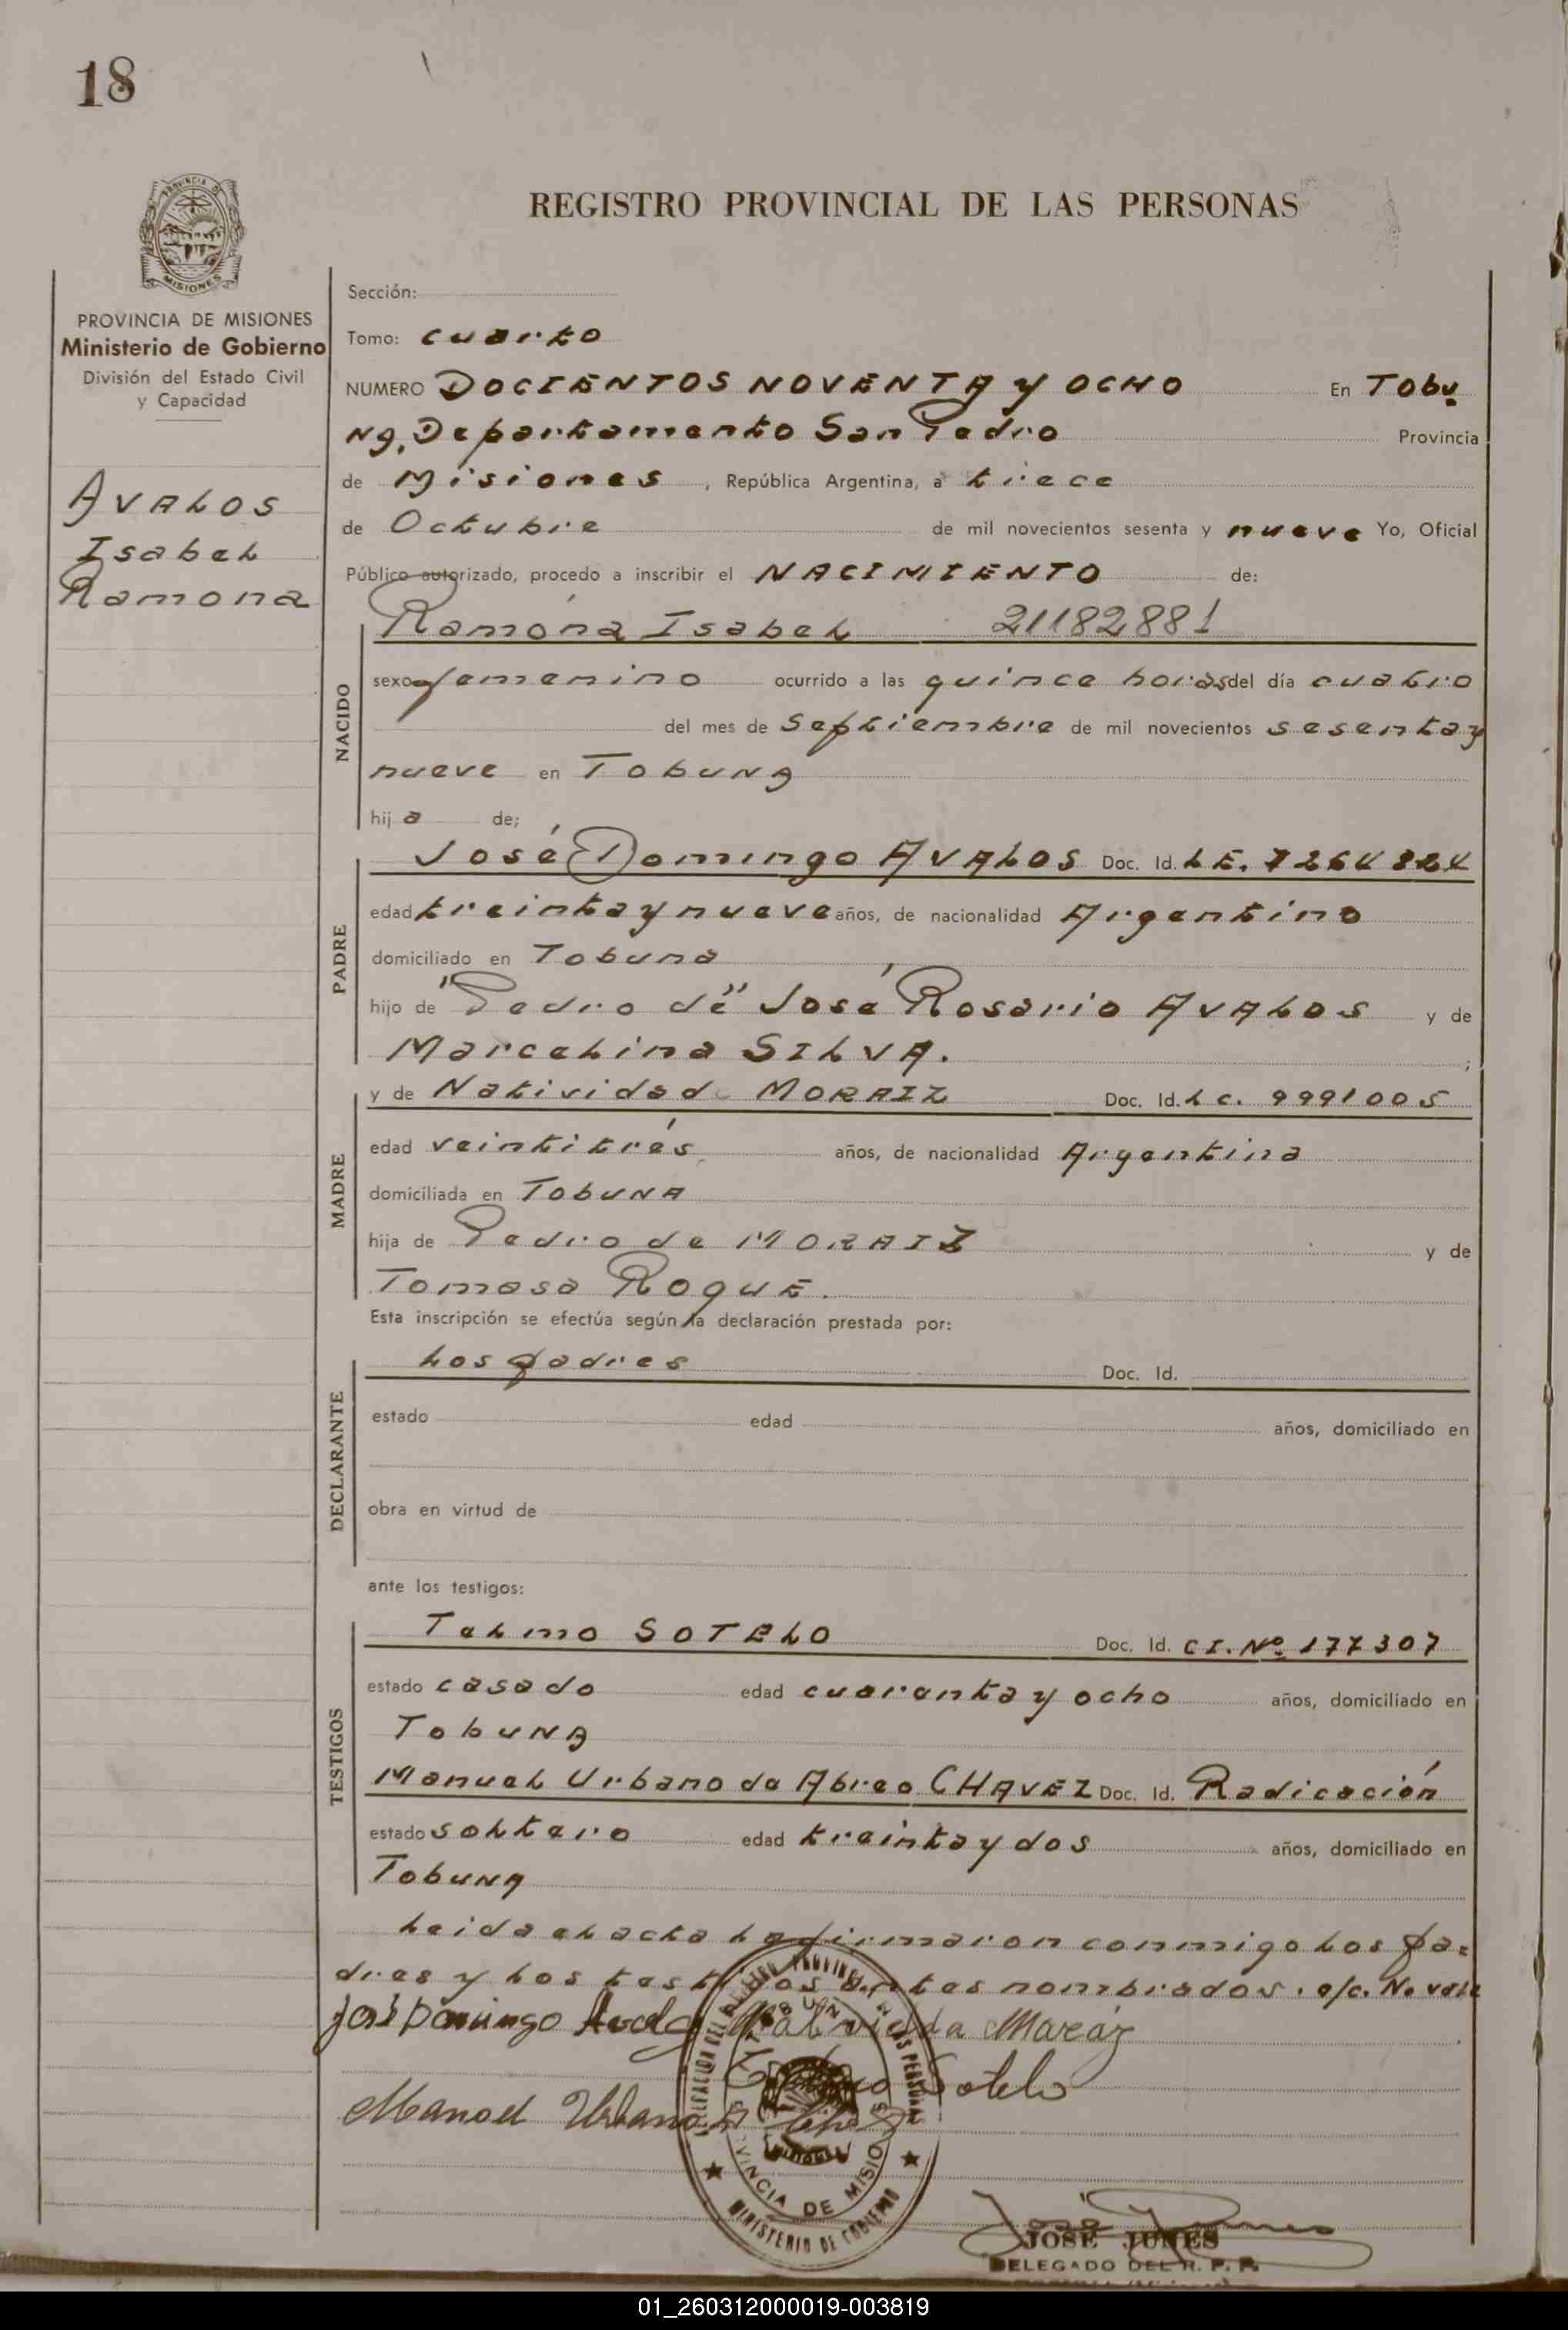 18
PROVINCIA DE
MISIONES
REGISTRO PROVINCIAL DE LAS PERSONAS
PROVINCIA DE MISIONES
Ministerio de Gobierno
División del Estado Civil
y Capacidad
AVALOS
Isabel
Ramona
Sección:
Tomo: cuarto
NUMERO DOCIENTOS NOVENTA y OCHO En Tobu
na, Departamento San Pedro Provincia
de Misiones, República Argentina, a trece
de Octubre de mil novecientos sesenta y nueve Yo, Oficial
Público autorizado, procedo a inscribir el NACIMIENTO de:
NACIDO
Ramóna Isabel 21182881
sexo femenino ocurrido a las quince horas del día cuatro
del mes de Septiembre de mil novecientos sesenta y
nueve en Tobuna
hija de;
PADRE
José Domingo AVALOS Doc. Id. LE.
edad treinta y nueve años, de nacionalidad Argentino
domiciliado en Tobuna
hijo de "Pedro de" José Rosario AVALOS y de
Marcelina SILVA. ;
MADRE
y de Natividad MORAIZ Doc. Id. LC. 9991005
edad veintitrés años, de nacionalidad Argentina
domiciliada en TobuNA
hija de Pedro de MORAIZ y de
Tomasa ROQUE.
Esta inscripción se efectúa según la declaración prestada por:
DECLARANTE
Los padres Doc. Id.
estado edad años, domiciliado en
obra en virtud de
ante los testigos:
TESTIGOS
Telmo SOTELO Doc. Id. CI. Nº 177307
estado casado edad cuarenta y ocho años, domiciliado en
TobuNA
Manuel Urbano da Abreo CHAVEZ Doc. Id. Radicación
estado soltero edad treinta y dos años, domiciliado en
Tobuna
Leida el acta la firmaron conmigo los pa=
dres y los testigos antes nombrados. e/c. No vale
José Domingo Avalo Natividda Maraiz
Sotelo
Manoel Urbano
PROVINCIA DE MISIONES
MINISTERIO DE GOBIERNO
JOSÉ JUNES
DELEGADO DEL R. P. P.
01_260312000019-003819